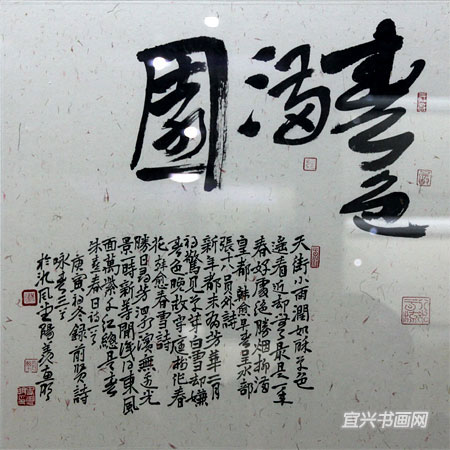 春色
滿
園
天街小雨潤如酥草色
遙看近却無最是一年
春好處絕勝煙柳滿
皇都 韓愈早春呈水部
張十八員外詩
新年都未有芳華二月
初驚見草芽白雪却嫌
春色晚故穿庭樹作春
花 韓愈春雪詩
勝日尋芳泗水濱無邊光
景一時新等閒識得東風
面萬紫千紅總是春
朱熹春日詩一首
庚寅初冬錄前賢詩
咏春三首
於沁風堂陽羨直明
宜兴书画网